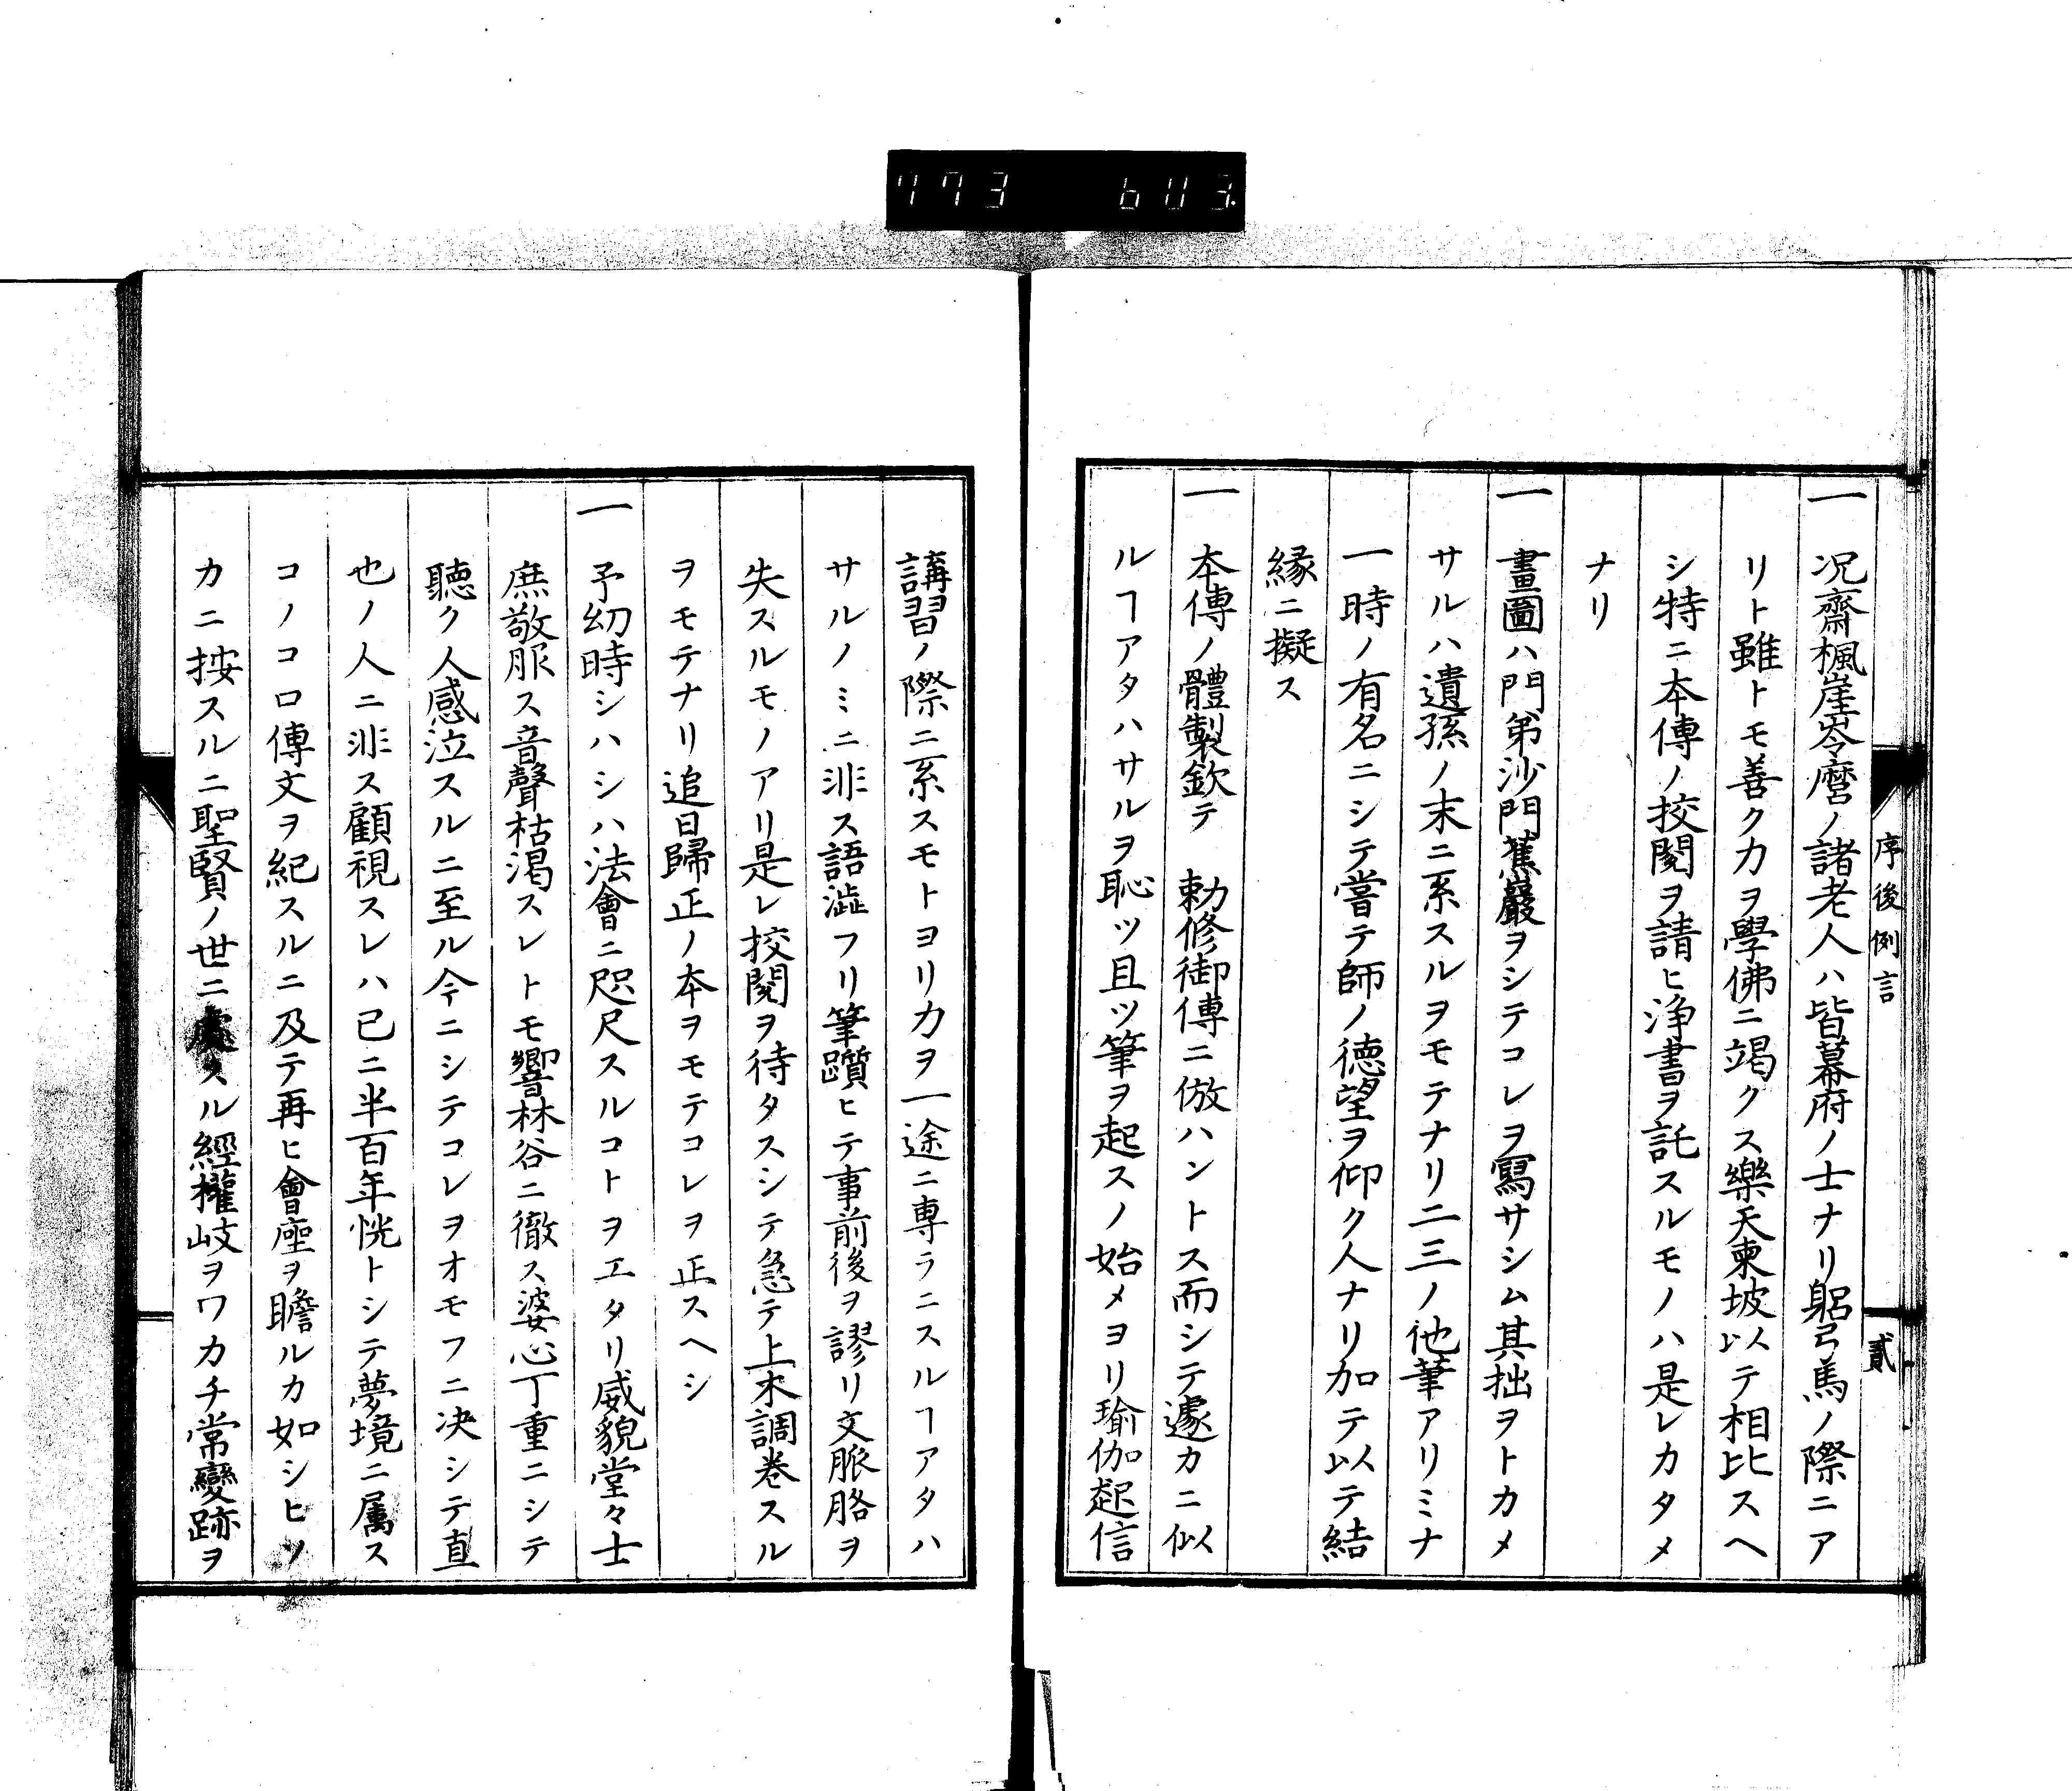 773 603.
序後例言
貳
一 况齋楓崖岺麿ノ諸老人ハ皆幕府ノ士ナリ躬弓馬ノ際ニア
リト雖トモ善ク力ヲ學佛ニ竭クス樂天東坡以テ相比スヘ
シ特ニ本傳ノ挍閲ヲ請ヒ浄書ヲ託スルモノハ是レカタメ
ナリ
一 畫圖ハ門弟沙門蕉巖ヲシテコレヲ寫サシム其拙ヲトカメ
サルハ遺孫ノ末ニ系スルヲモテナリ二三ノ他筆アリミナ
一時ノ有名ニシテ嘗テ師ノ徳望ヲ仰ク人ナリ加テ以テ結
縁ニ擬ス
一 本傳ノ體製欽テ 勅修御傳ニ倣ハントス而シテ遽カニ似
ルヿアタハサルヲ恥ツ且ツ筆ヲ起スノ始メヨリ瑜伽起信
講習ノ際ニ系スモトヨリ力ヲ一途ニ専ラニスルヿアタハ
サルノミニ非ス語澁フリ筆躓ヒテ事前後ヲ謬リ文脈胳ヲ
失スルモノアリ是レ挍閲ヲ待タスシテ急テ上木調巻スル
ヲモテナリ追日歸正ノ本ヲモテコレヲ正スヘシ
一 予幼時シハシハ法會ニ咫尺スルコトヲエタリ威貌堂々士
庶敬服ス音聲枯渇スレトモ響林谷ニ徹ス婆心丁重ニシテ
聽ク人感泣スルニ至ル今ニシテコレヲオモフニ决シテ直
也ノ人ニ非ス顧視スレハ已ニ半百年恍トシテ夢境ニ属ス
コノコロ傳文ヲ紀スルニ及テ再ヒ會座ヲ瞻ルカ如シヒソ
カニ按スルニ聖賢ノ世ニ處スル經權岐ヲワカチ常變跡ヲ